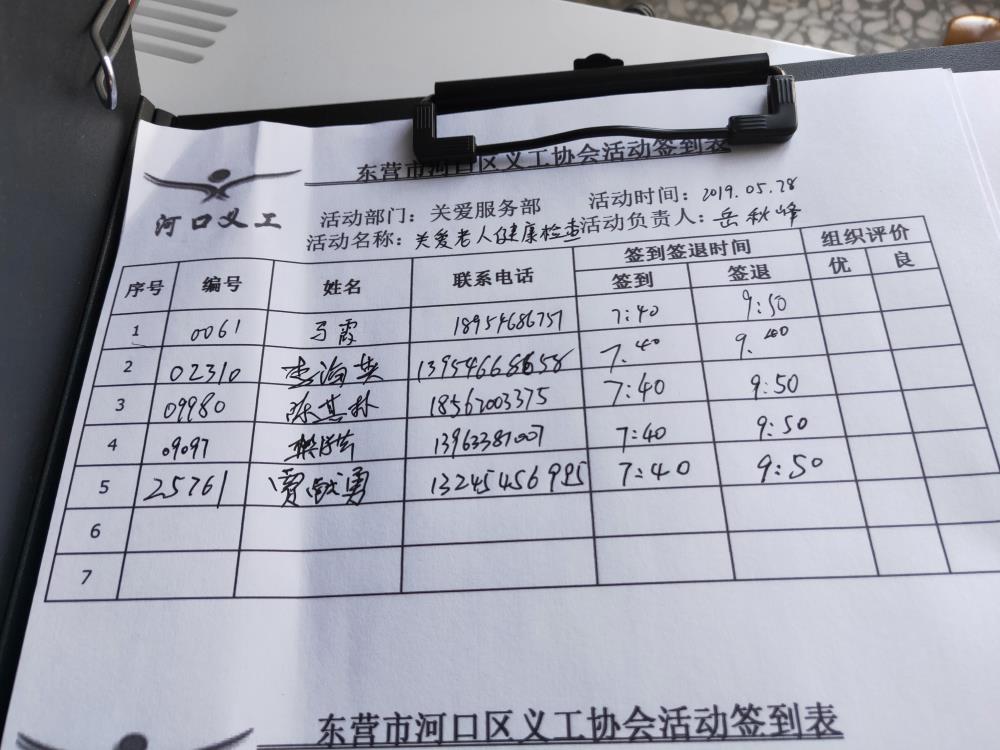 东营市河口区义工协会活动签到表
河口义工
活动部门：关爱服务部 活动时间：2019.05.28
活动名称：关爱老人健康检查 活动负责人：岳秋峰
序号 编号 姓名 联系电话 签到签退时间 组织评价
签到 签退 优 良
1 0061 马霞 18954686757 7:40 9:50
2 02310 李海英 13954668658 7.40 9.40
3 09980 陈其林 18562003375 7:40 9:50
4 09097 13963381007 7:40 9:50
5 25761 贾献勇 13245456995 7:40 9:50
6
7
东营市河口区义工协会活动签到表